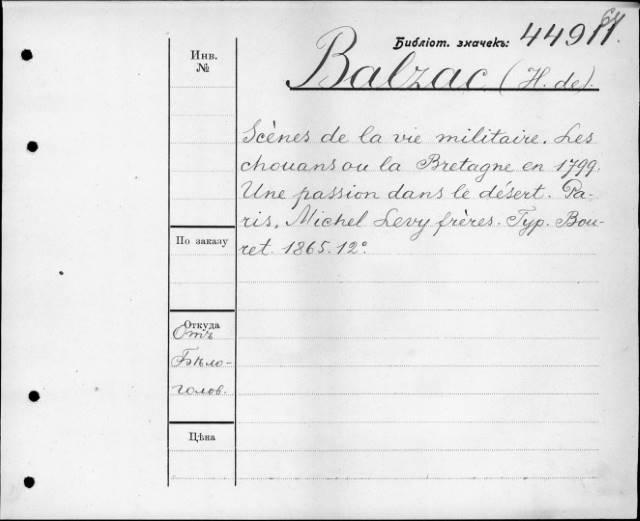 64
Библіот. значекъ: 44911
Balzac (H. de).
Инв.
№
Scènes de la vie militaire. Les
chouans ou la Bretagne en 1799.
Une passion dans le désert. Pa-
ris, Michel Levy frères. Typ. Bou-
ret. 1865. 12°.
По заказу
Откуда
Отъ
Бѣло-
голов.
Цѣна